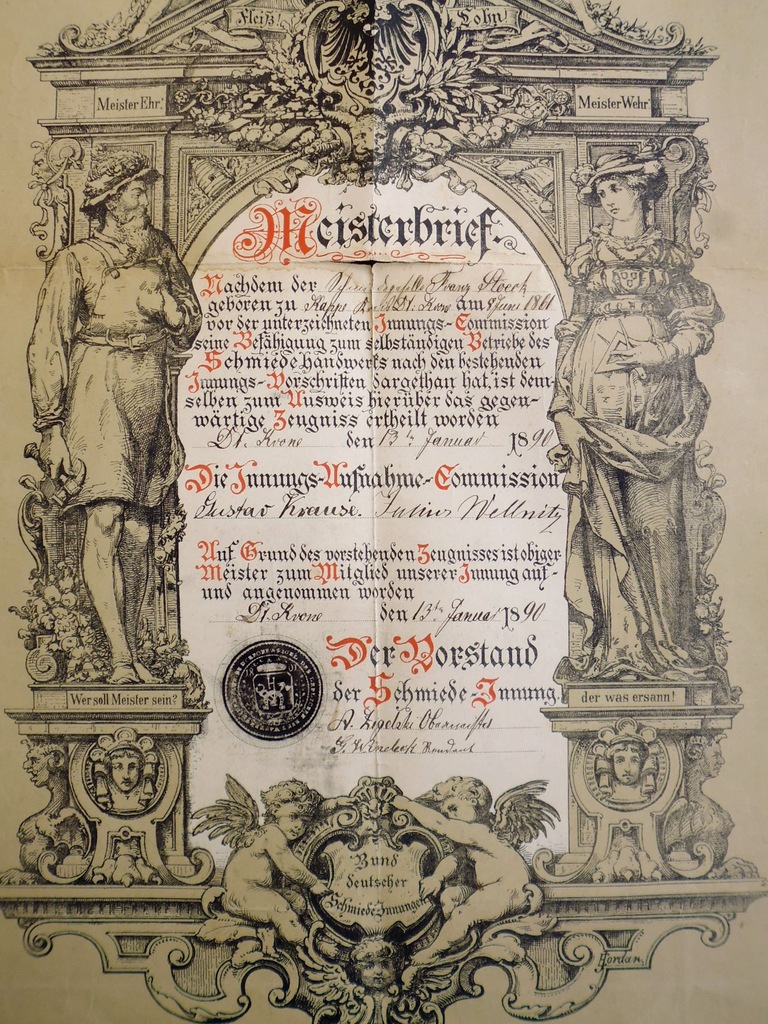 Fleiß! Lohn!
Meister Ehr. Meister Wehr
Meisterbrief.
Nachdem der Schmiedegeselle Franz Stoeck
geboren zu Kreis Dt. Krone am 8 Juni 1861
vor der unterzeichneten Innungs-Commission
seine Befähigung zum selbständigen Betriebe des
Schmiede Handwerks nach den bestehenden
Innungs-Vorschriften dargethan hat, ist dem-
selben zum Ausweis hierüber das gegen-
wärtige Zeugniss ertheilt worden
Dt. Krone den 13ten Januar 1890
Die Innungs-Aufnahme-Commission
Gustav Krause. Julius Wellnitz
Auf Grund des vorstehenden Zeugnisses ist obiger
Meister zum Mitglied unserer Innung auf-
und angenommen worden
Dt. Krone den 13ten Januar 1890
Der Vorstand
der Schmiede-Innung.
Obermeister
Rendant
Wer soll Meister sein? der was ersann!
Bund
deutscher
Schmiede Innungen
Jordan.